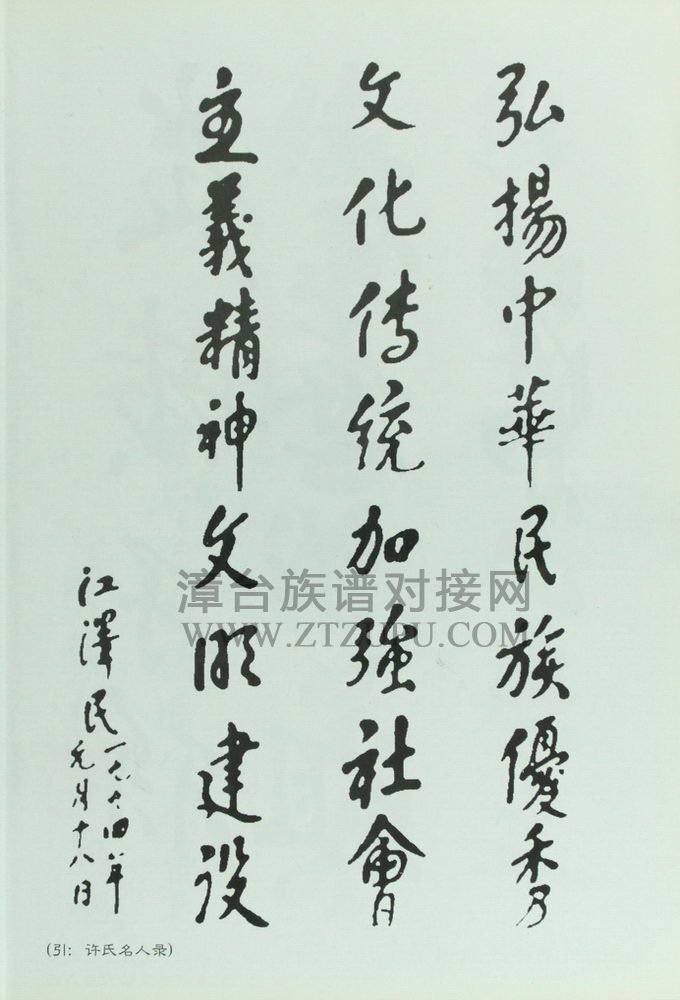 弘揚中華民族優秀
文化传統加強社會
主義精神文明建设
江澤民
一九九四年
元月十八日
漳台族谱对接网
WWW.ZTZUPU.COM
(引：许氏名人录)